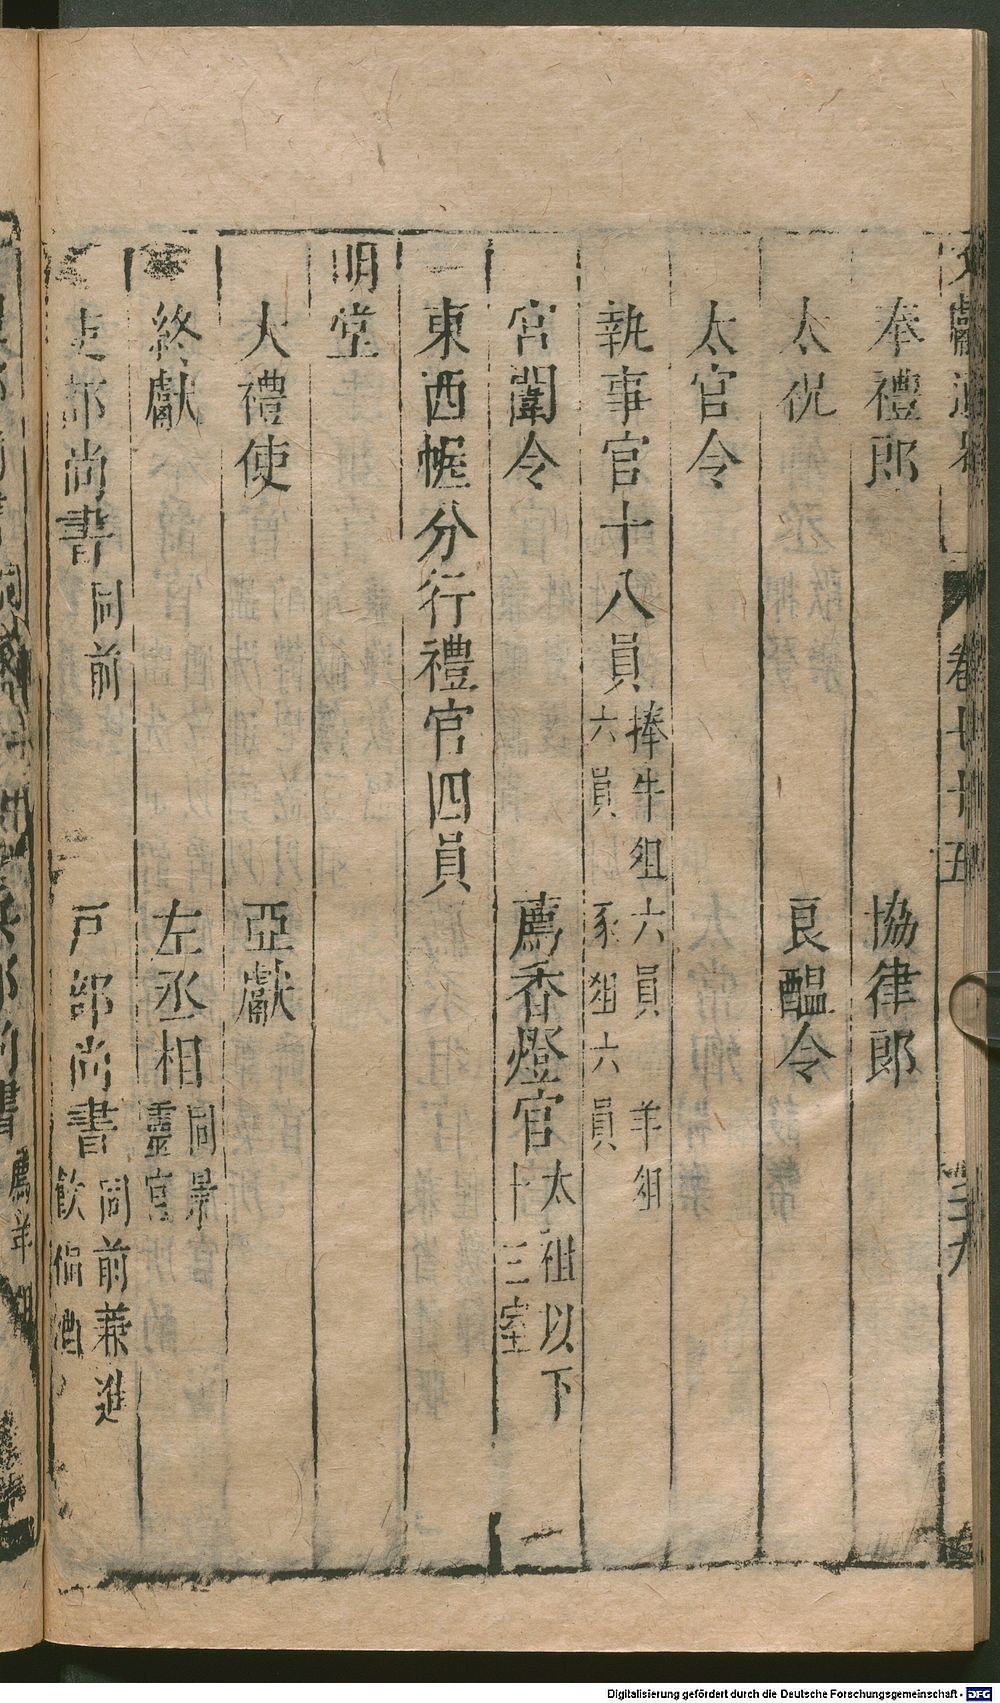 文獻通考 卷七十五 二十九
奉禮郎 協律郎
太祝 良醞令
太官令
執事官十八員 捧牛俎六員 羊俎六員 豕俎六員
宮闈令 薦香燈官 太祖以下十三室
東西幄分行禮官四員
明堂
大禮使 亞獻
終獻 左丞相 同景靈宮
吏部尚書 同前 戶部尚書 同前兼進飲福酒
Digitalisierung gefördert durch die Deutsche Forschungsgemeinschaft - DFG